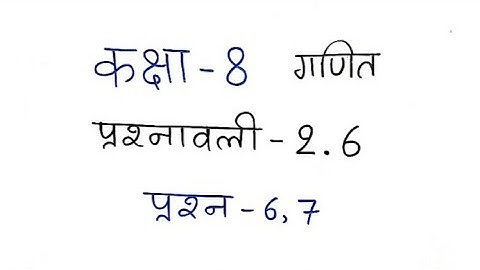 कक्षा - 8 गणित
प्रश्नावली - 2.6
प्रश्न - 6, 7